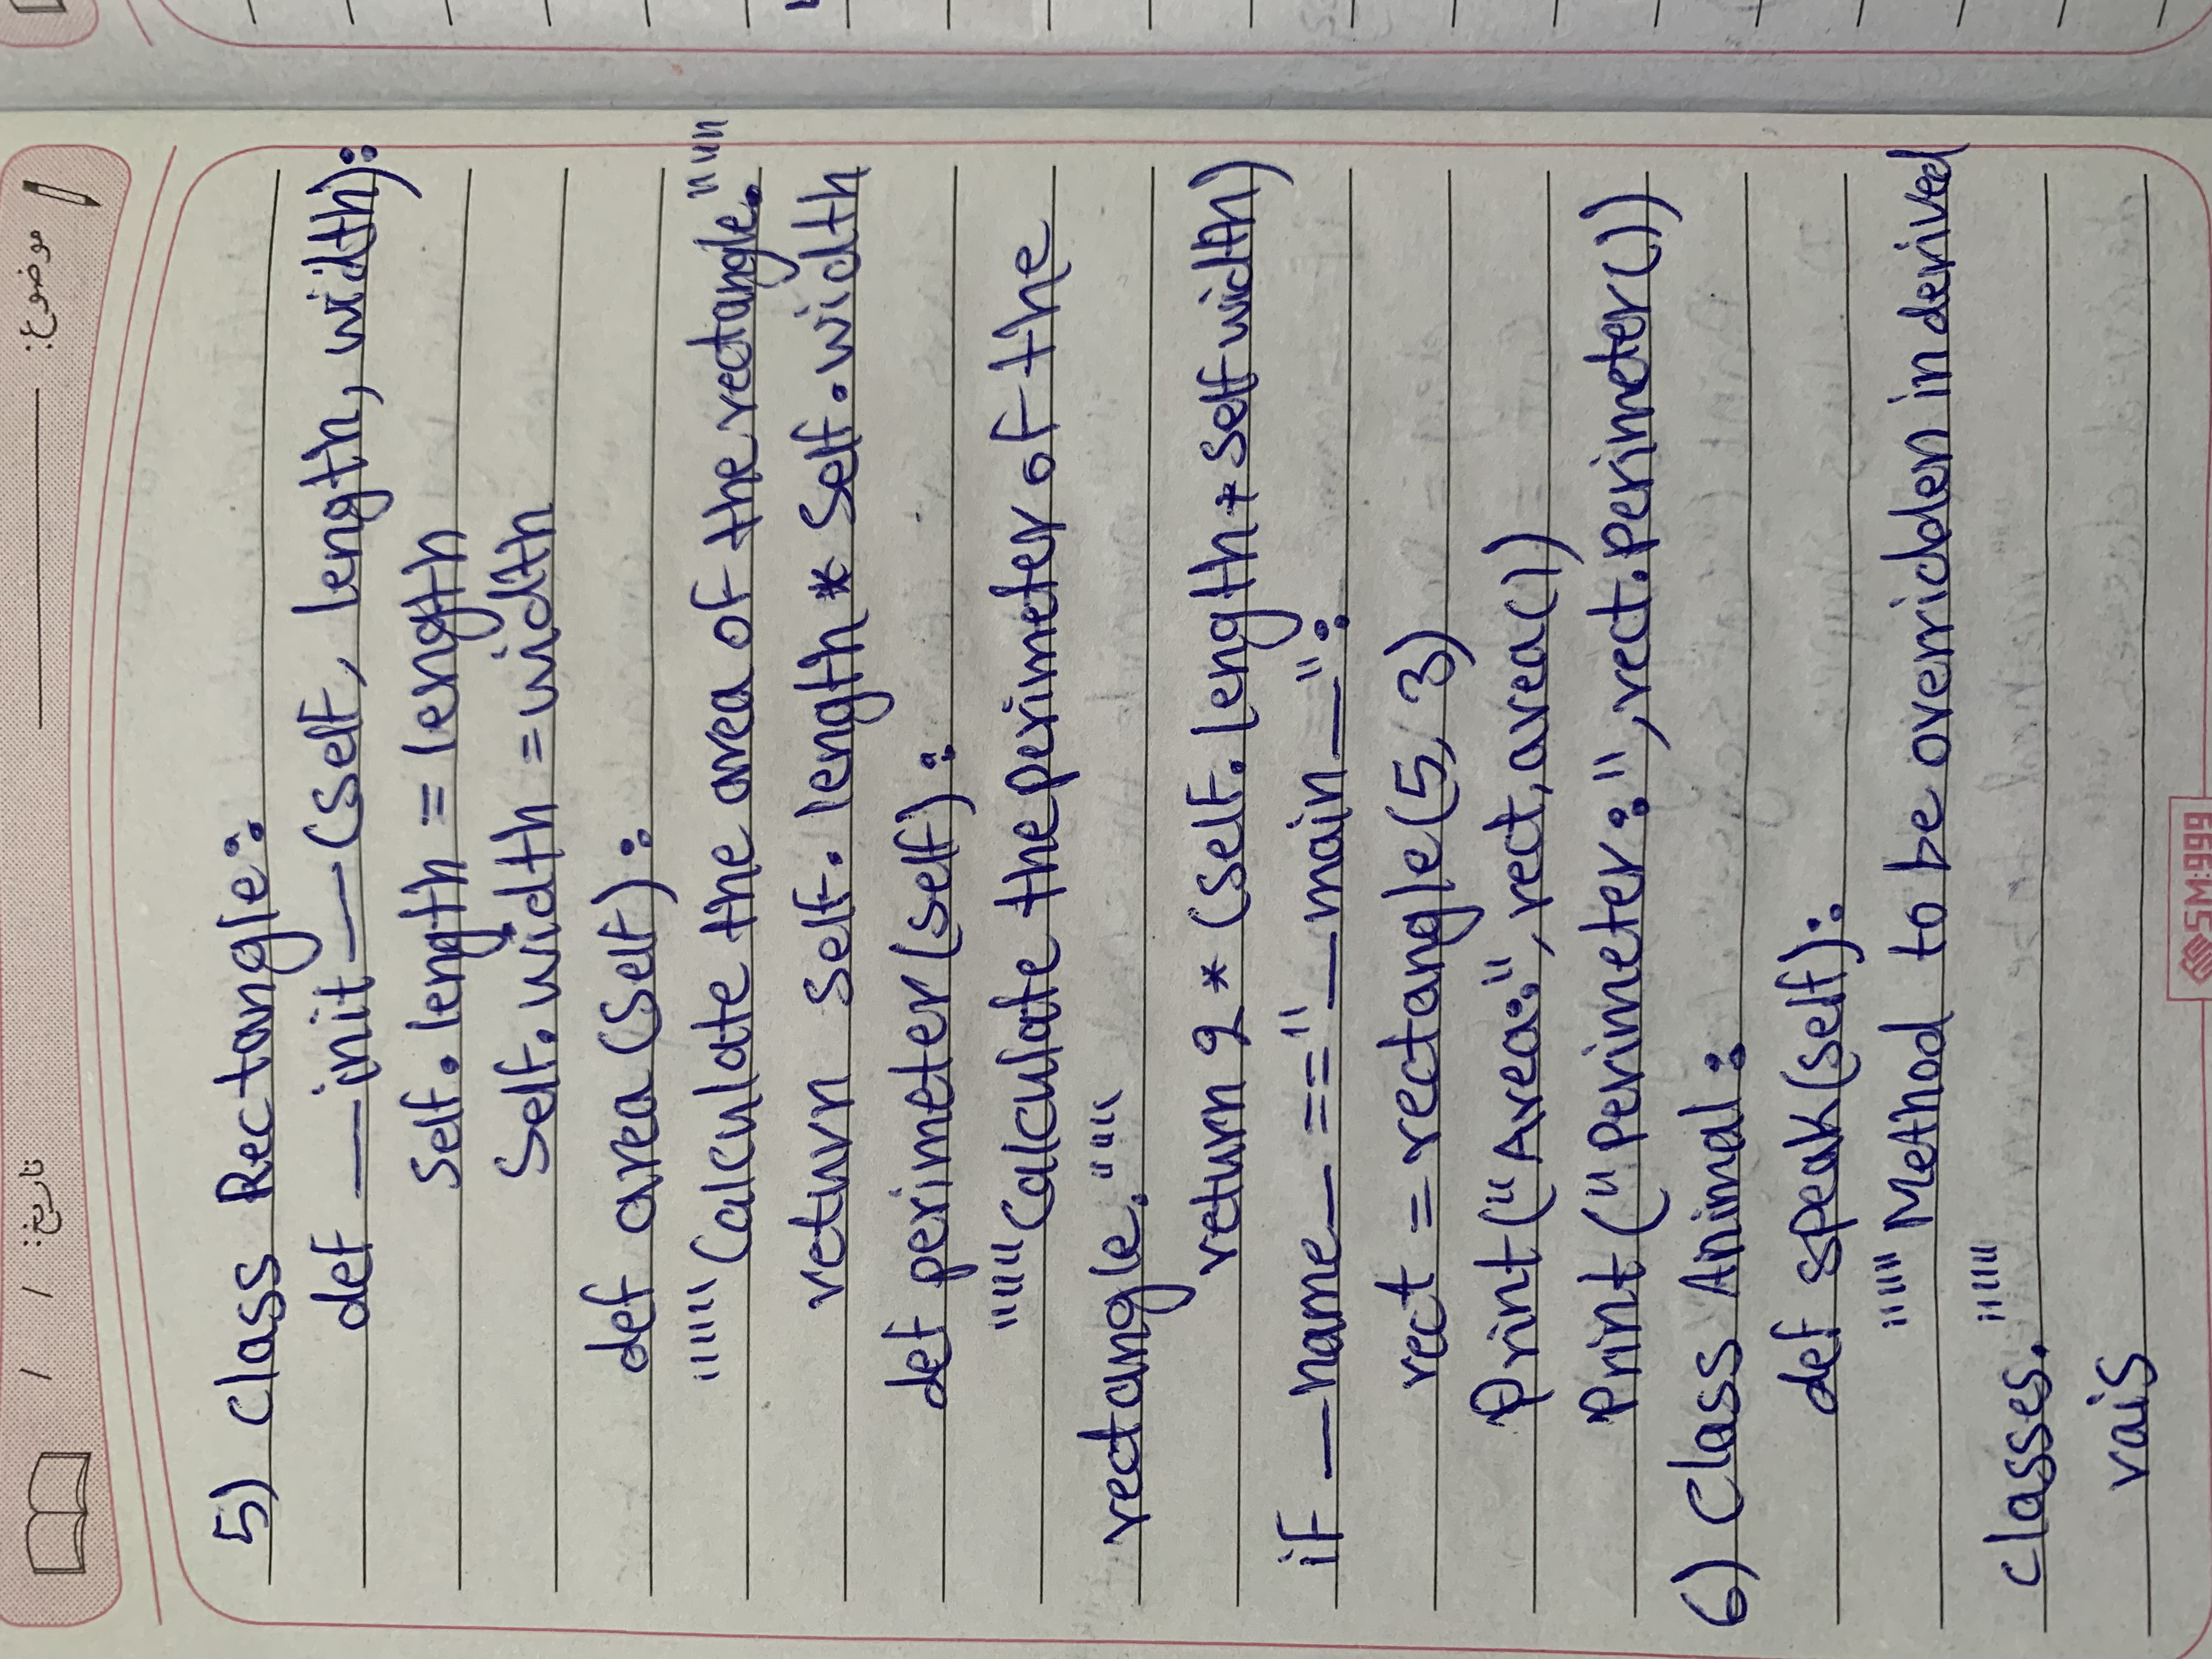 موضوع: تاریخ: / /
5) class Rectangle:
def __init__(self, length, width):
self.length = length
self.width = width
def area (self):
"""Calculate the area of the rectangle."""
return self.length * self.width
def perimeter(self):
"""Calculate the perimeter of the
rectangle."""
return 2 * (self.length + self width)
if __name__ == "__main__":
rect = rectangle(5, 3)
Print("Area:", rect, area())
Print("Perimeter:", rect.perimeter())
6) Class Animal:
def speak(self):
"""Method to be overridden in derived
classes."""
rais
SM:999